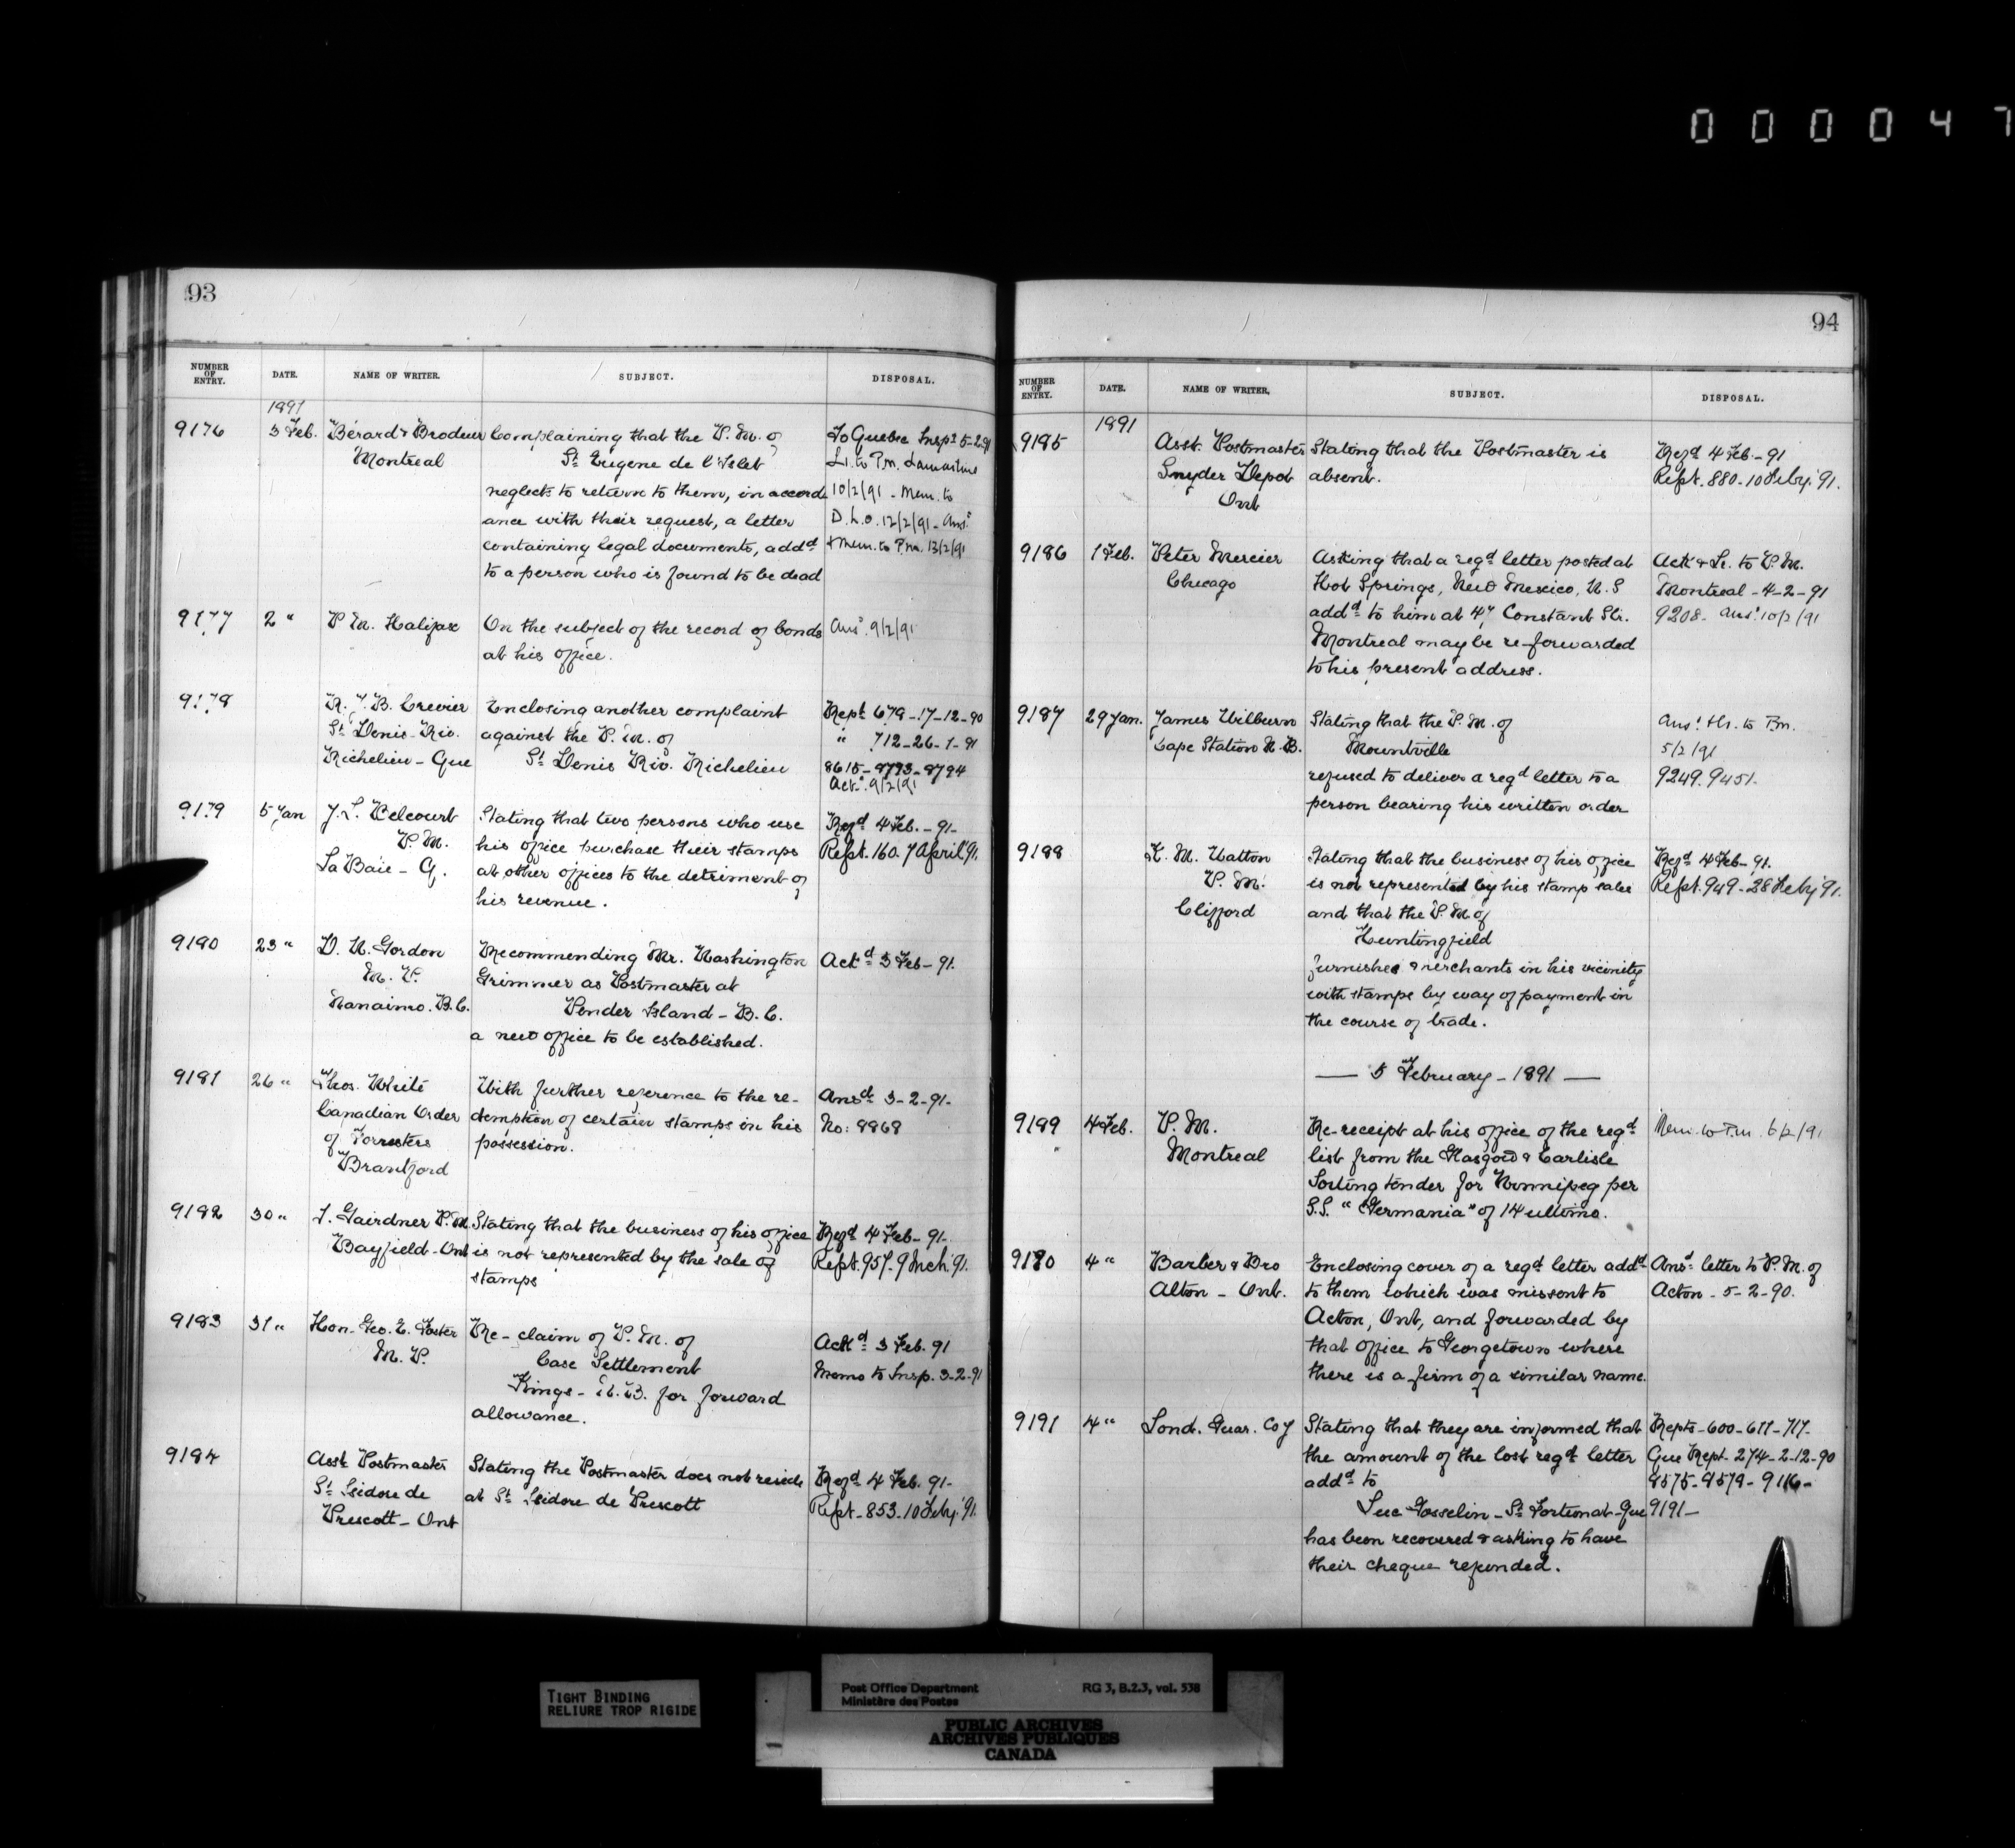 000047
93
NUMBER OF ENTRY. DATE. NAME OF WRITER. SUBJECT. DISPOSAL.
1891
9176 3 Feb. Bérard & Brodeur Complaining that the P.M. of To Quebec Inspr 5-2-91
Montreal St Eugene de l'Islet Lr. to Pm. Lamartine
neglects to return to them, in accord 10/2/91 - Mem. to
ance with their request, a letter D.L.O. 12/2/91 - Ansd
containing legal documents, addd & Mem. to Pm. 13/2/91
to a person who is found to be dead
9177 2 " P.M. Halifax On the subject of the record of bonds Ansd. 9/2/91
at his office.
9178 R. J. B. Crevier Enclosing another complaint Rept 679-17-12-90
St Denis-Riv. against the P.M. of " 712-26-1-91
Richelieu - Que St Denis Riv. Richelieu 8615-8793-8794
Ackd. 9/2/91
9179 5 Jan J. L. Belcourt Stating that two persons who use Regd 4 Feb. - 91-
P.M. his office purchase their stamps Rept. 160. 7 April 91.
La Baie - Q. at other offices to the detriment of
his revenue.
9180 23 " D. W. Gordon Recommending Mr. Washington Ackd 3 Feb - 91.
M.P. Grimmer as Postmaster at
Nanaimo. B.C. Pender Island - B.C.
a new office to be established.
9181 26 " Thos. White With further reference to the re- Ansd 3-2-91-
Canadian Order demption of certain stamps in his No: 8868
of Forresters possession.
Brantford
9182 30 " J. Gairdner P.M. Stating that the business of his office Regd 4 Feb - 91-
Bayfield - Ont is not represented by the sale of Rept. 957. 9 Mch. 91.
stamps
9183 31 " Hon. Geo. E. Foster Re- claim of P.M. of Ackd 3 Feb. 91
M.P. Case Settlement Memo to Insp. 3-2-91
Kings - N.B. for forward
allowance.
9184 Asst Postmaster Stating the Postmaster does not reside Regd 4 Feb. 91-
St Isidore de at St Isidore de Prescott Rept - 853 - 10 Feby. 91.
Prescott - Ont
94
NUMBER OF ENTRY. DATE. NAME OF WRITER. SUBJECT. DISPOSAL.
1891
9185 Asst. Postmaster Stating that the Postmaster is Regd 4 Feb. - 91
Snyder Depot absent. Rept. 880 - 10 Feby. 91.
Ont
9186 1 Feb. Peter Mercier Asking that a regd letter posted at Ack & Lr. to P.M.
Chicago Hot Springs, New Mexico, U.S Montreal - 4-2-91
addd to him at 47 Constant Str. 9208. Ansd 10/2/91
Montreal may be re-forwarded
to his present address.
9187 29 Jan. James Wilburn Stating that the P.M. of Ansd. Lr. to Pm.
Cape Station N.B. Mountville 5/2/91
refused to deliver a regd letter to a 9249. 9451.
person bearing his written order
9188 K. M. Watton Stating that the business of his office Regd 4 Feb - 91.
P.M. is not represented by his stamp sales Rept. 949 - 28 Feby 91.
Clifford and that the P.M. of
Huntingfield
furnishes merchants in his vicinity
with stamps by way of payment in
the course of trade.
— 5 February - 1891 —
9189 4 Feb. P.M. Re-receipt at his office of the regd Mem. to P.m. 6/2/91
Montreal list from the Glasgow & Carlisle
Sorting tender for Winnipeg per
S.S. "Germania" of 14 ultimo.
9190 4 " Barber & Bro Enclosing cover of a regd letter addd Ansd letter to P.M. of
Alton - Ont. to them which was missent to Acton - 5-2-90.
Acton, Ont, and forwarded by
that office to Georgetown where
there is a firm of a similar name.
9191 4 " Lond. Guar. Coy Stating that they are informed that Repts - 600 - 611 - 717-
the amount of the lost regd letter Que Rept - 274-2-12-90
addd to 8575-8579-9116-
Luc Gosselin - St Fortunat - Que 9191-
has been recovered & asking to have
their cheque refunded.
TIGHT BINDING
RELIURE TROP RIGIDE
Post Office Department RG 3, B.2.3, vol. 538
Ministère des Postes
PUBLIC ARCHIVES
ARCHIVES PUBLIQUES
CANADA